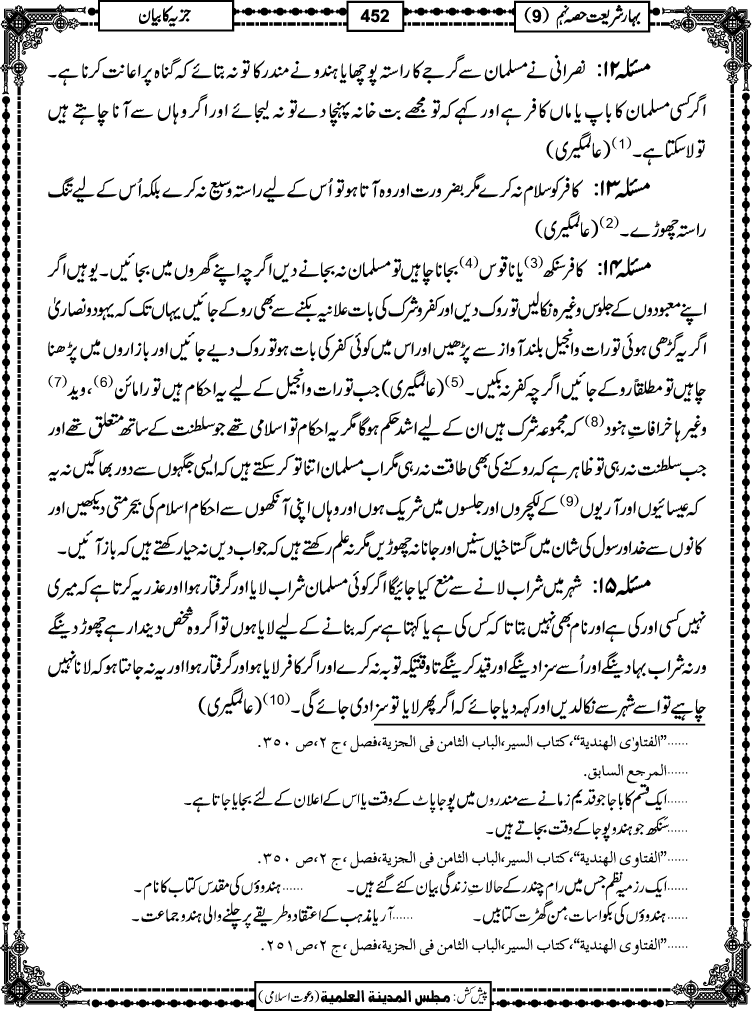 بہارِ شریعت حصہ نہم (9)
452
جزیہ کا بیان
مسئلہ ۱۲: نصرانی نے مسلمان سے گرجے کا راستہ پوچھا یا ہندو نے مندر کا تو نہ بتائے کہ گناہ پر اعانت کرنا ہے۔
اگر کسی مسلمان کا باپ یا ماں کافر ہے اور کہے کہ تو مجھے بت خانہ پہنچا دے تو نہ لیجائے اور اگر وہاں سے آنا چاہتے ہیں
تو لا سکتا ہے۔ (1) (عالمگیری)
مسئلہ ۱۳: کافر کو سلام نہ کرے مگر بضرورت اور وہ آتا ہو تو اُس کے لیے راستہ وسیع نہ کرے بلکہ اُس کے لیے تنگ
راستہ چھوڑے۔ (2) (عالمگیری)
مسئلہ ۱۴: کافر سنکھ (3) یا ناقوس (4) بجانا چاہیں تو مسلمان نہ بجانے دیں اگرچہ اپنے گھروں میں بجائیں۔ یوہیں اگر
اپنے معبودوں کے جلوس وغیرہ نکالیں تو روک دیں اور کفر و شرک کی بات علانیہ بکنے سے بھی روکے جائیں یہاں تک کہ یہود و نصاریٰ
اگر یہ گڑھی ہوئی تورات و انجیل بلند آواز سے پڑھیں اور اس میں کوئی کفر کی بات ہو تو روک دیے جائیں اور بازاروں میں پڑھنا
چاہیں تو مطلقاً روکے جائیں اگرچہ کفر نہ بکیں۔ (5) (عالمگیری) جب تورات و انجیل کے لیے یہ احکام ہیں تو رامائن (6)، وید (7)
وغیرہا خرافاتِ ہنود (8) کہ مجموعہ شرک ہیں ان کے لیے اشد حکم ہوگا مگر یہ احکام تو اسلامی تھے جو سلطنت کے ساتھ متعلق تھے اور
جب سلطنت نہ رہی تو ظاہر ہے کہ روکنے کی بھی طاقت نہ رہی مگر اب مسلمان اتنا تو کر سکتے ہیں کہ ایسی جگہوں سے دور بھاگیں نہ یہ
کہ عیسائیوں اور آریوں (9) کے لکچروں اور جلسوں میں شریک ہوں اور وہاں اپنی آنکھوں سے احکام اسلام کی بیحرمتی دیکھیں اور
کانوں سے خدا و رسول کی شان میں گستاخیاں سنیں اور جانا نہ چھوڑیں مگر نہ علم رکھتے ہیں کہ جواب دیں نہ حیا رکھتے ہیں کہ باز آئیں۔
مسئلہ ۱۵: شہر میں شراب لانے سے منع کیا جائیگا اگر کوئی مسلمان شراب لایا اور گرفتار ہوا اور عذر یہ کرتا ہے کہ میری
نہیں کسی اور کی ہے اور نام بھی نہیں بتاتا کہ کس کی ہے یا کہتا ہے سرکہ بنانے کے لیے لایا ہوں تو اگر وہ شخص دیندار ہے چھوڑ دینگے
ورنہ شراب بہا دینگے اور اُسے سزا دینگے اور قید کرینگے تاوقتیکہ توبہ نہ کرے اور اگر کافر لایا ہو اور گرفتار ہوا اور یہ نہ جانتا ہو کہ لانا نہیں
چاہیے تو اسے شہر سے نکالدیں اور کہہ دیا جائے کہ اگر پھر لایا تو سزا دی جائے گی۔ (10) (عالمگیری)
......"الفتاوی الهندية"، کتاب السیر، الباب الثامن فی الجزية، فصل، ج ۲، ص ۳۵۰.
......المرجع السابق.
......ایک قسم کا باجا جو قدیم زمانے سے مندروں میں پوجا پاٹ کے وقت یا اس کے اعلان کے لئے بجایا جاتا ہے۔
......سَنکھ جو ہندو پوجا کے وقت بجاتے ہیں۔
......"الفتاوی الهندية"، کتاب السیر، الباب الثامن فی الجزية، فصل، ج ۲، ص ۳۵۰.
......ایک رزمیہ نظم جس میں رام چندر کے حالاتِ زندگی بیان کئے گئے ہیں۔ ......ہندوؤں کی مقدس کتاب کا نام۔
......ہندوؤں کی بکواسات، من گھڑت کتابیں۔ ......آریا مذہب کے اعتقاد و طریقے پر چلنے والی ہندو جماعت۔
......"الفتاوی الهندية"، کتاب السیر، الباب الثامن فی الجزية، فصل، ج ۲، ص ۲۵۱.
پیش کش: مجلس المدينة العلمية (دعوت اسلامی)